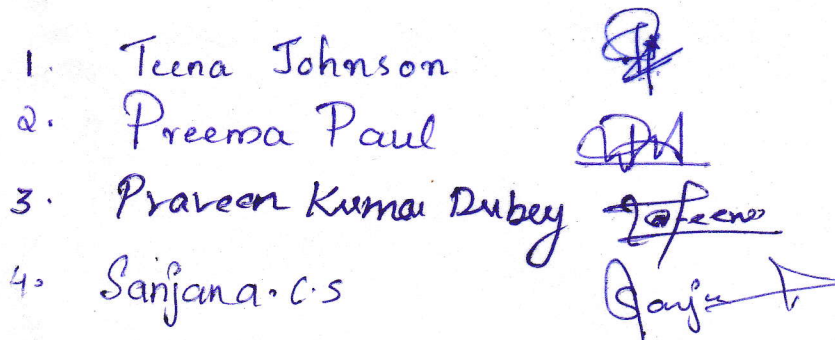 1. Teena Johnson
2. Preema Paul
3. Praveen Kumar Dubey
4. Sanjana. C.S